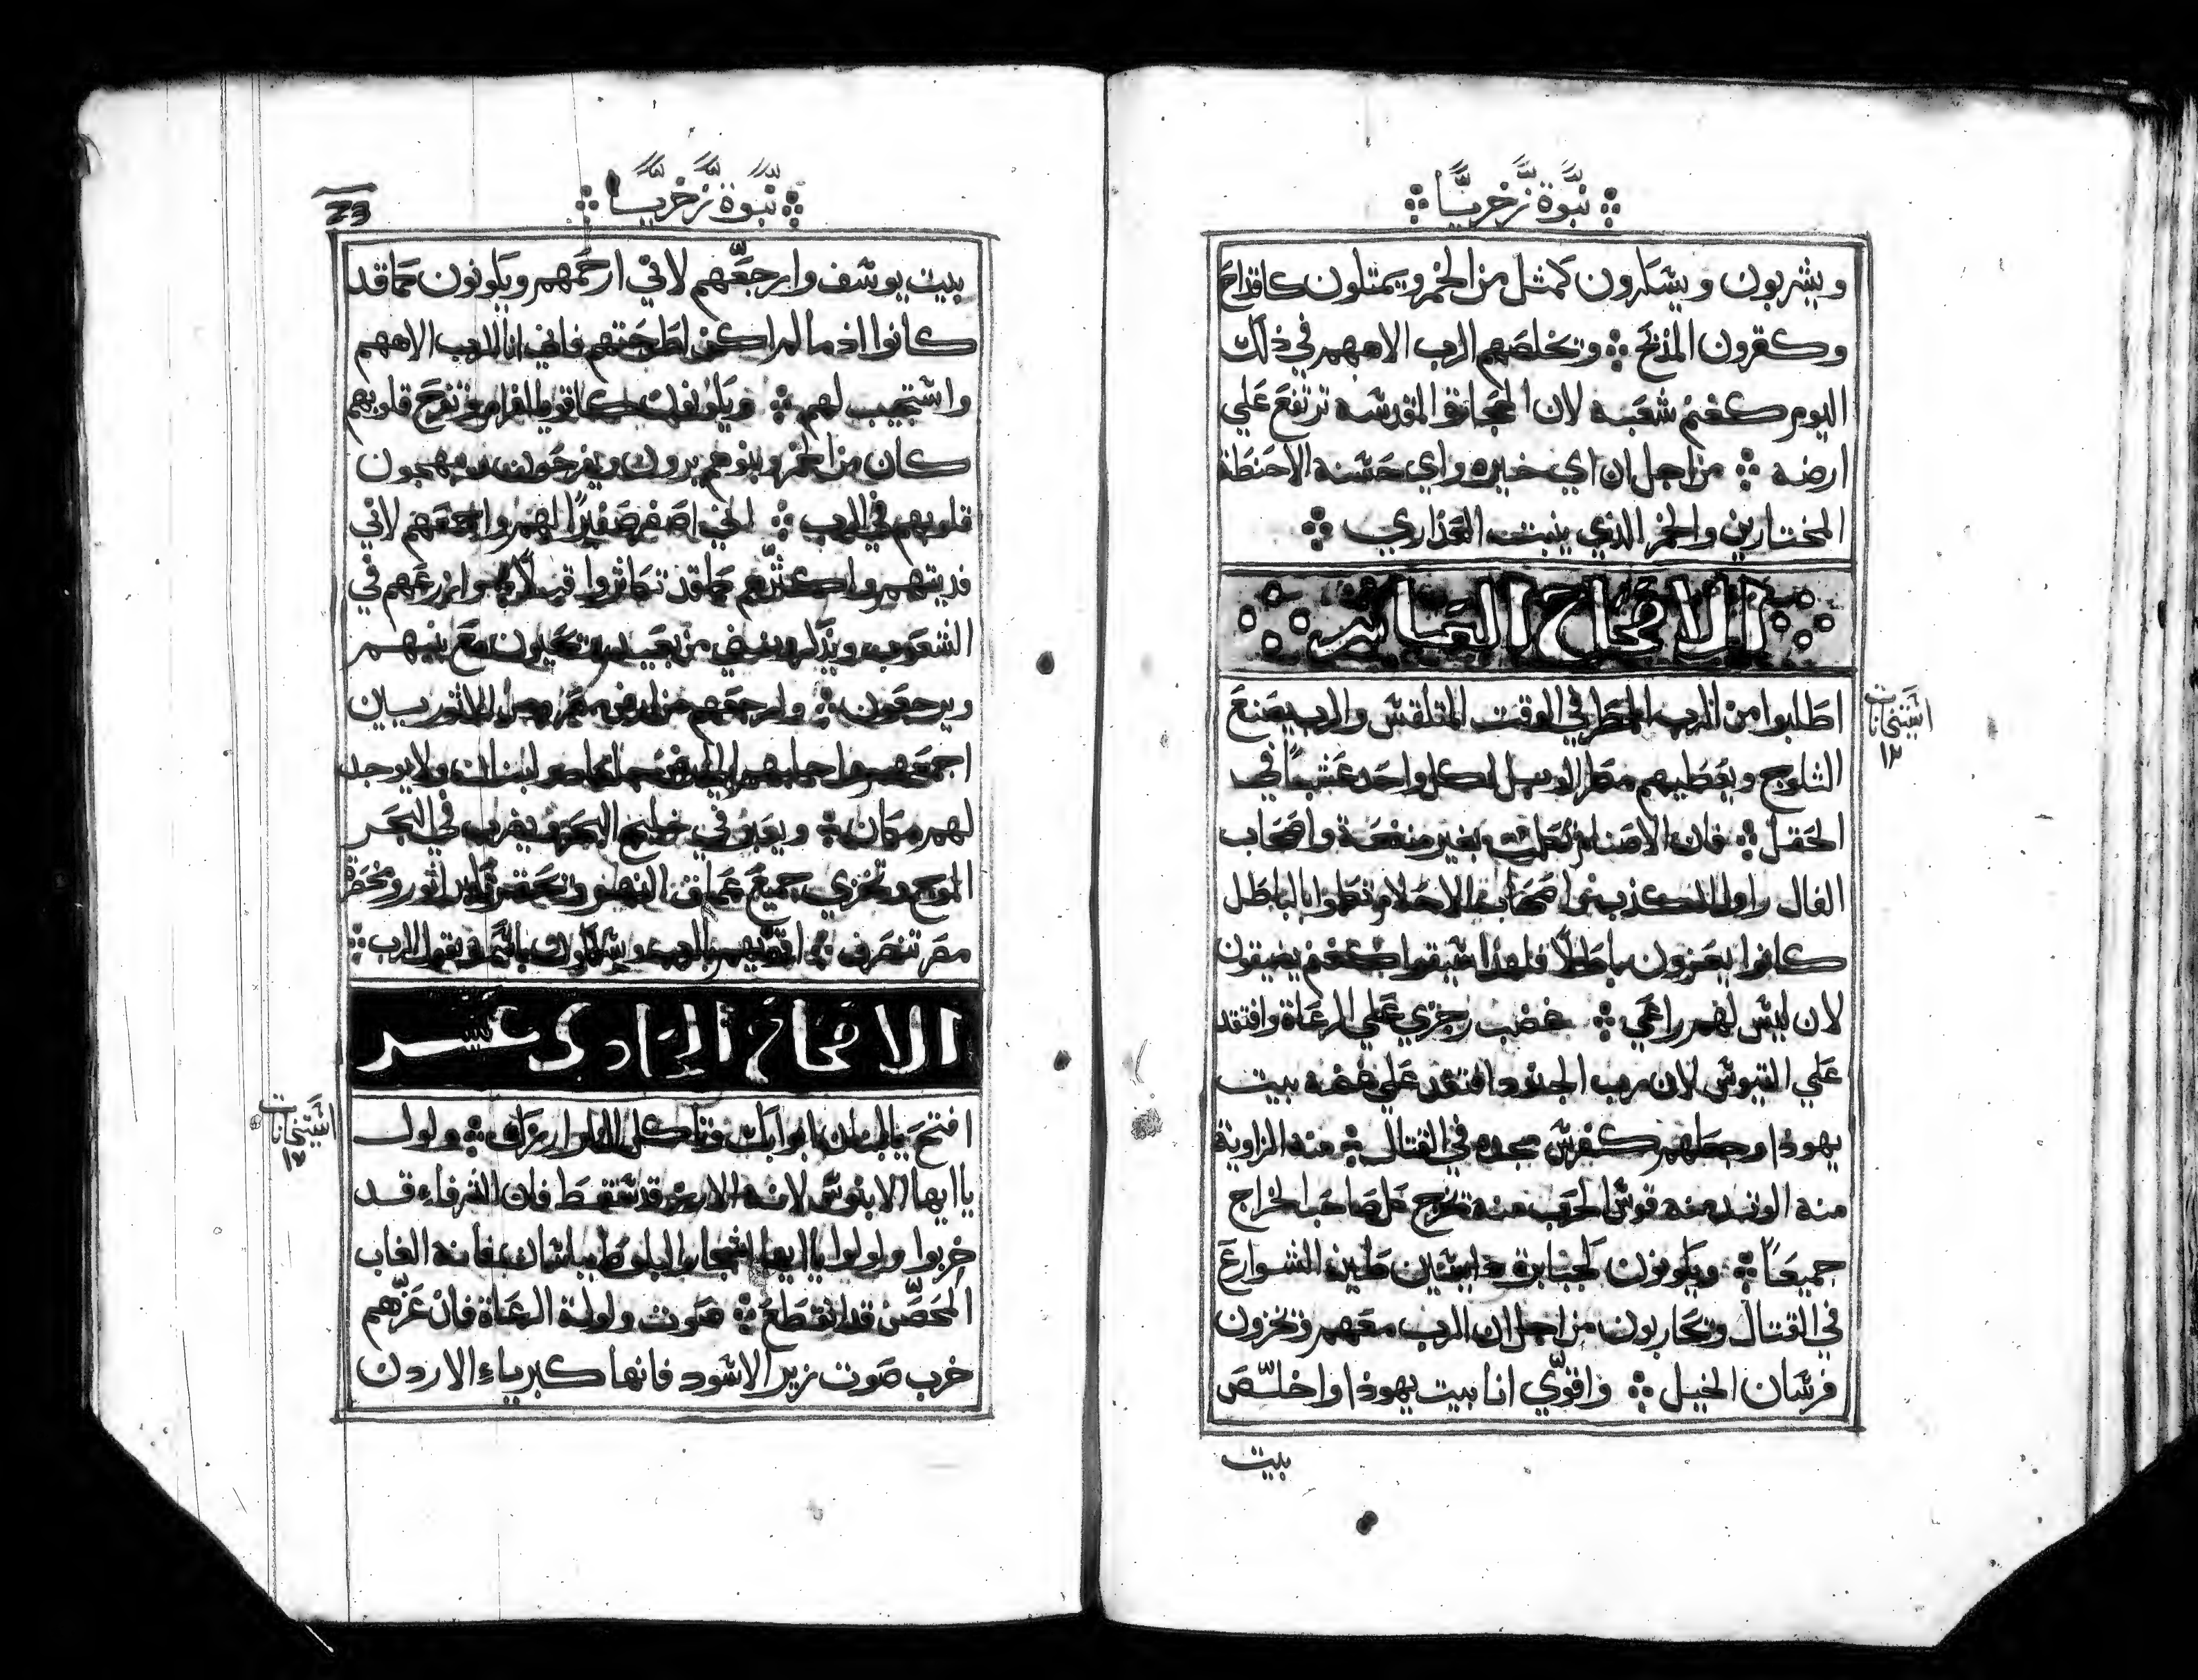 نبوة زخريا
ويشربون ويسكرون كمثل من الخمر ويمتلون كاقداح
وكقرون المذبح وتخلصهم الرب الاههم في ذلك
اليوم كغنم شعبه لان الحجارة المقدسه ترتفع علي
ارضه من اجل ان اي خيره واي حسنه الا حنطة
المختارين والخمر الذي ينبت العذاري
الاصحاح العاشر
اطلبوا من الرب المطر في الوقت المتلقس والرب يصنع
استيخانات
١٢
الثلوج ويعطيهم مطر الوبل لكل واحد عشبا في
الحقل فان الاصنام تكلمت بغير منفعة واصحاب
الفال راوا الكذب واصحاب الاحلام تكلموا بالباطل
كانوا يعزون باطلا فلهذا سيقوا كغنم يضيقون
لان ليس لهم راعي غضب رجزي علي الرعاة وافتقد
علي التيوس لان رب الجنود افتقد علي غنمه بيت
يهوذا وجعلهم كفرس مجده في القتال منه الزاوية
منه الوتد منه قوس الحرب منه تخرج كل صاحب الخراج
جميعا ويكونون كجبابرة دايسين طين الشوارع
في القتال وتحاربون من اجل ان الرب معهم وتخزون
فرسان الخيل واقوي انا بيت يهوذا واخلص
بيت
نبوة زخريا
23
بيت يوسف وارجعهم لاني ارحمهم ويكونون كما قد
كانوا اذ ما لم اكن اطرحتهم فاني انا الرب الاههم
واستجيب لهم ويكونون كاقويا افرام وتفرح قلوبهم
كان من الخمر وبنوهم يرون ويفرحون ويبهجون
قلوبهم في الرب اني اصفر صفيرا لهم واجمعهم لاني
فديتهم واكثرهم كما قد تكاثروا قبلا وازرعهم في
الشعوب ويذكرونني من بعيد وتحيون مع بنيهم
ويرجعون وارجعهم من ارض مصر ومن الاثوريين
اجمعهم واجلبهم الي ارض جلعاد ولبنان ولا يوجد
لهم مكان ويعبر في خليج البحر ويضرب في البحر
الموج وتخزي جميع عماق النهر وتحتقر اثور وتحضرة
مصر تنصرف اقويهم بالرب ويسلكون باسمه يقول الرب
الاصحاح الحادي عشر
افتح يا لبنان ابوابك وتاكل النار ارزك ولول
استيخانات
١٢
يا ايها الابنوس لانه الارز قد سقط فان الشرفاء قد
خربوا ولولوا يا ايها اشجار البلوط بباشان فانه الغاب
المحصن قد انقطع صوت ولولة الرعاة فان عزهم
خرب صوت زير الاسود فانها كبرياء الاردن